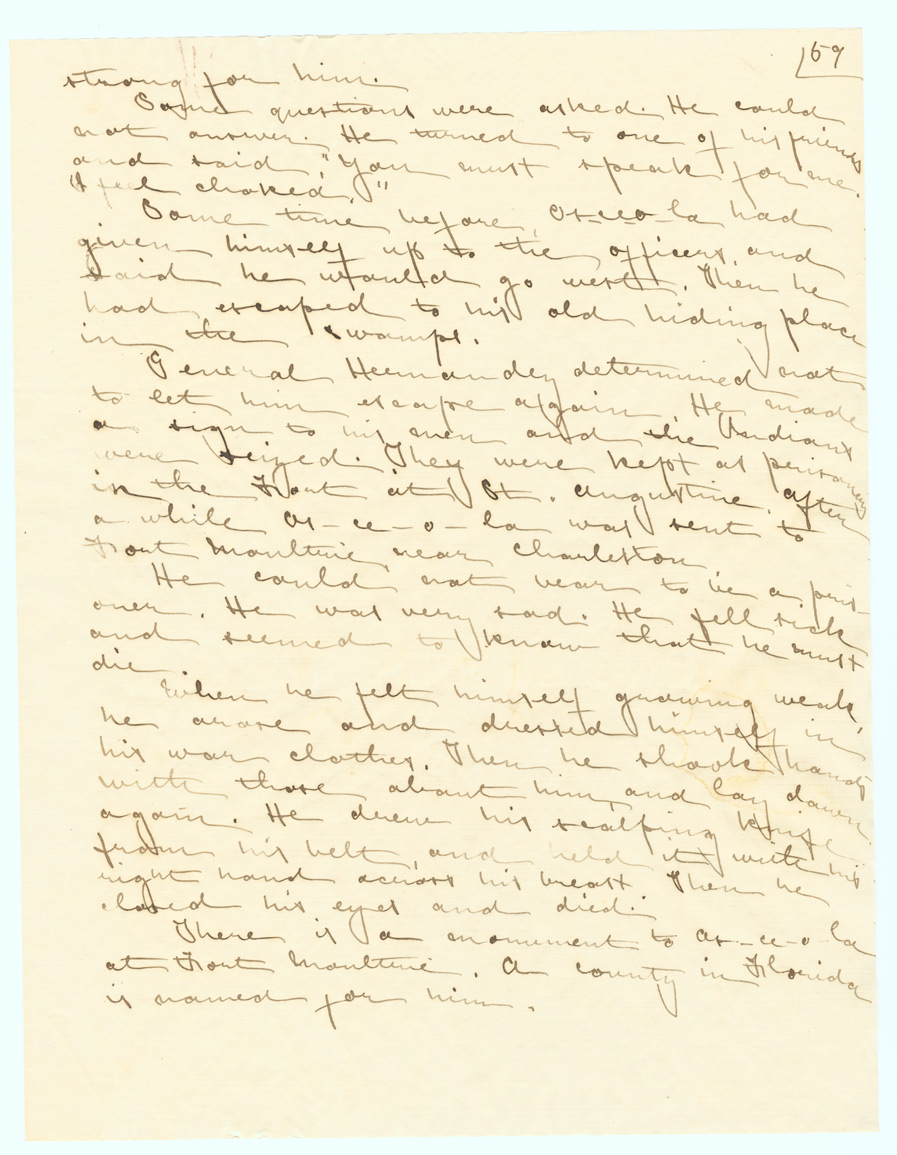 159
strong for him.
Some questions were asked. He could
not answer. He turned to one of his friends
and said "You must speak for me.
"I feel choked."
Some time before, Os-ce-o-la had
given himself up to the officers, and
said he would go west. Then he
had escaped to his old hiding place
in the swamps.
General Hernandez determined not
to let him escape again. He made
a sign to his men and the Indians
were seized. They were kept as prisoners
in the Fort at St. Augustine. After
a while Os-ce-o-la was sent to
Fort Moultrie, near Charleston
He could not bear to be a pris-
oner. He was very sad. He fell sick
and seemed to know that he must
die.
When he felt himself growing weak,
he arose and dressed himself in
his war clothes. Then he shook hands
with those about him, and lay down
again. He drew his scalping knife
from his belt, and held it with his
right hand across his breast. Then he
closed his eyes and died.
There is a monument to Os-ce-o-la
at Fort Moultrie. A county in Florida
is named for him.